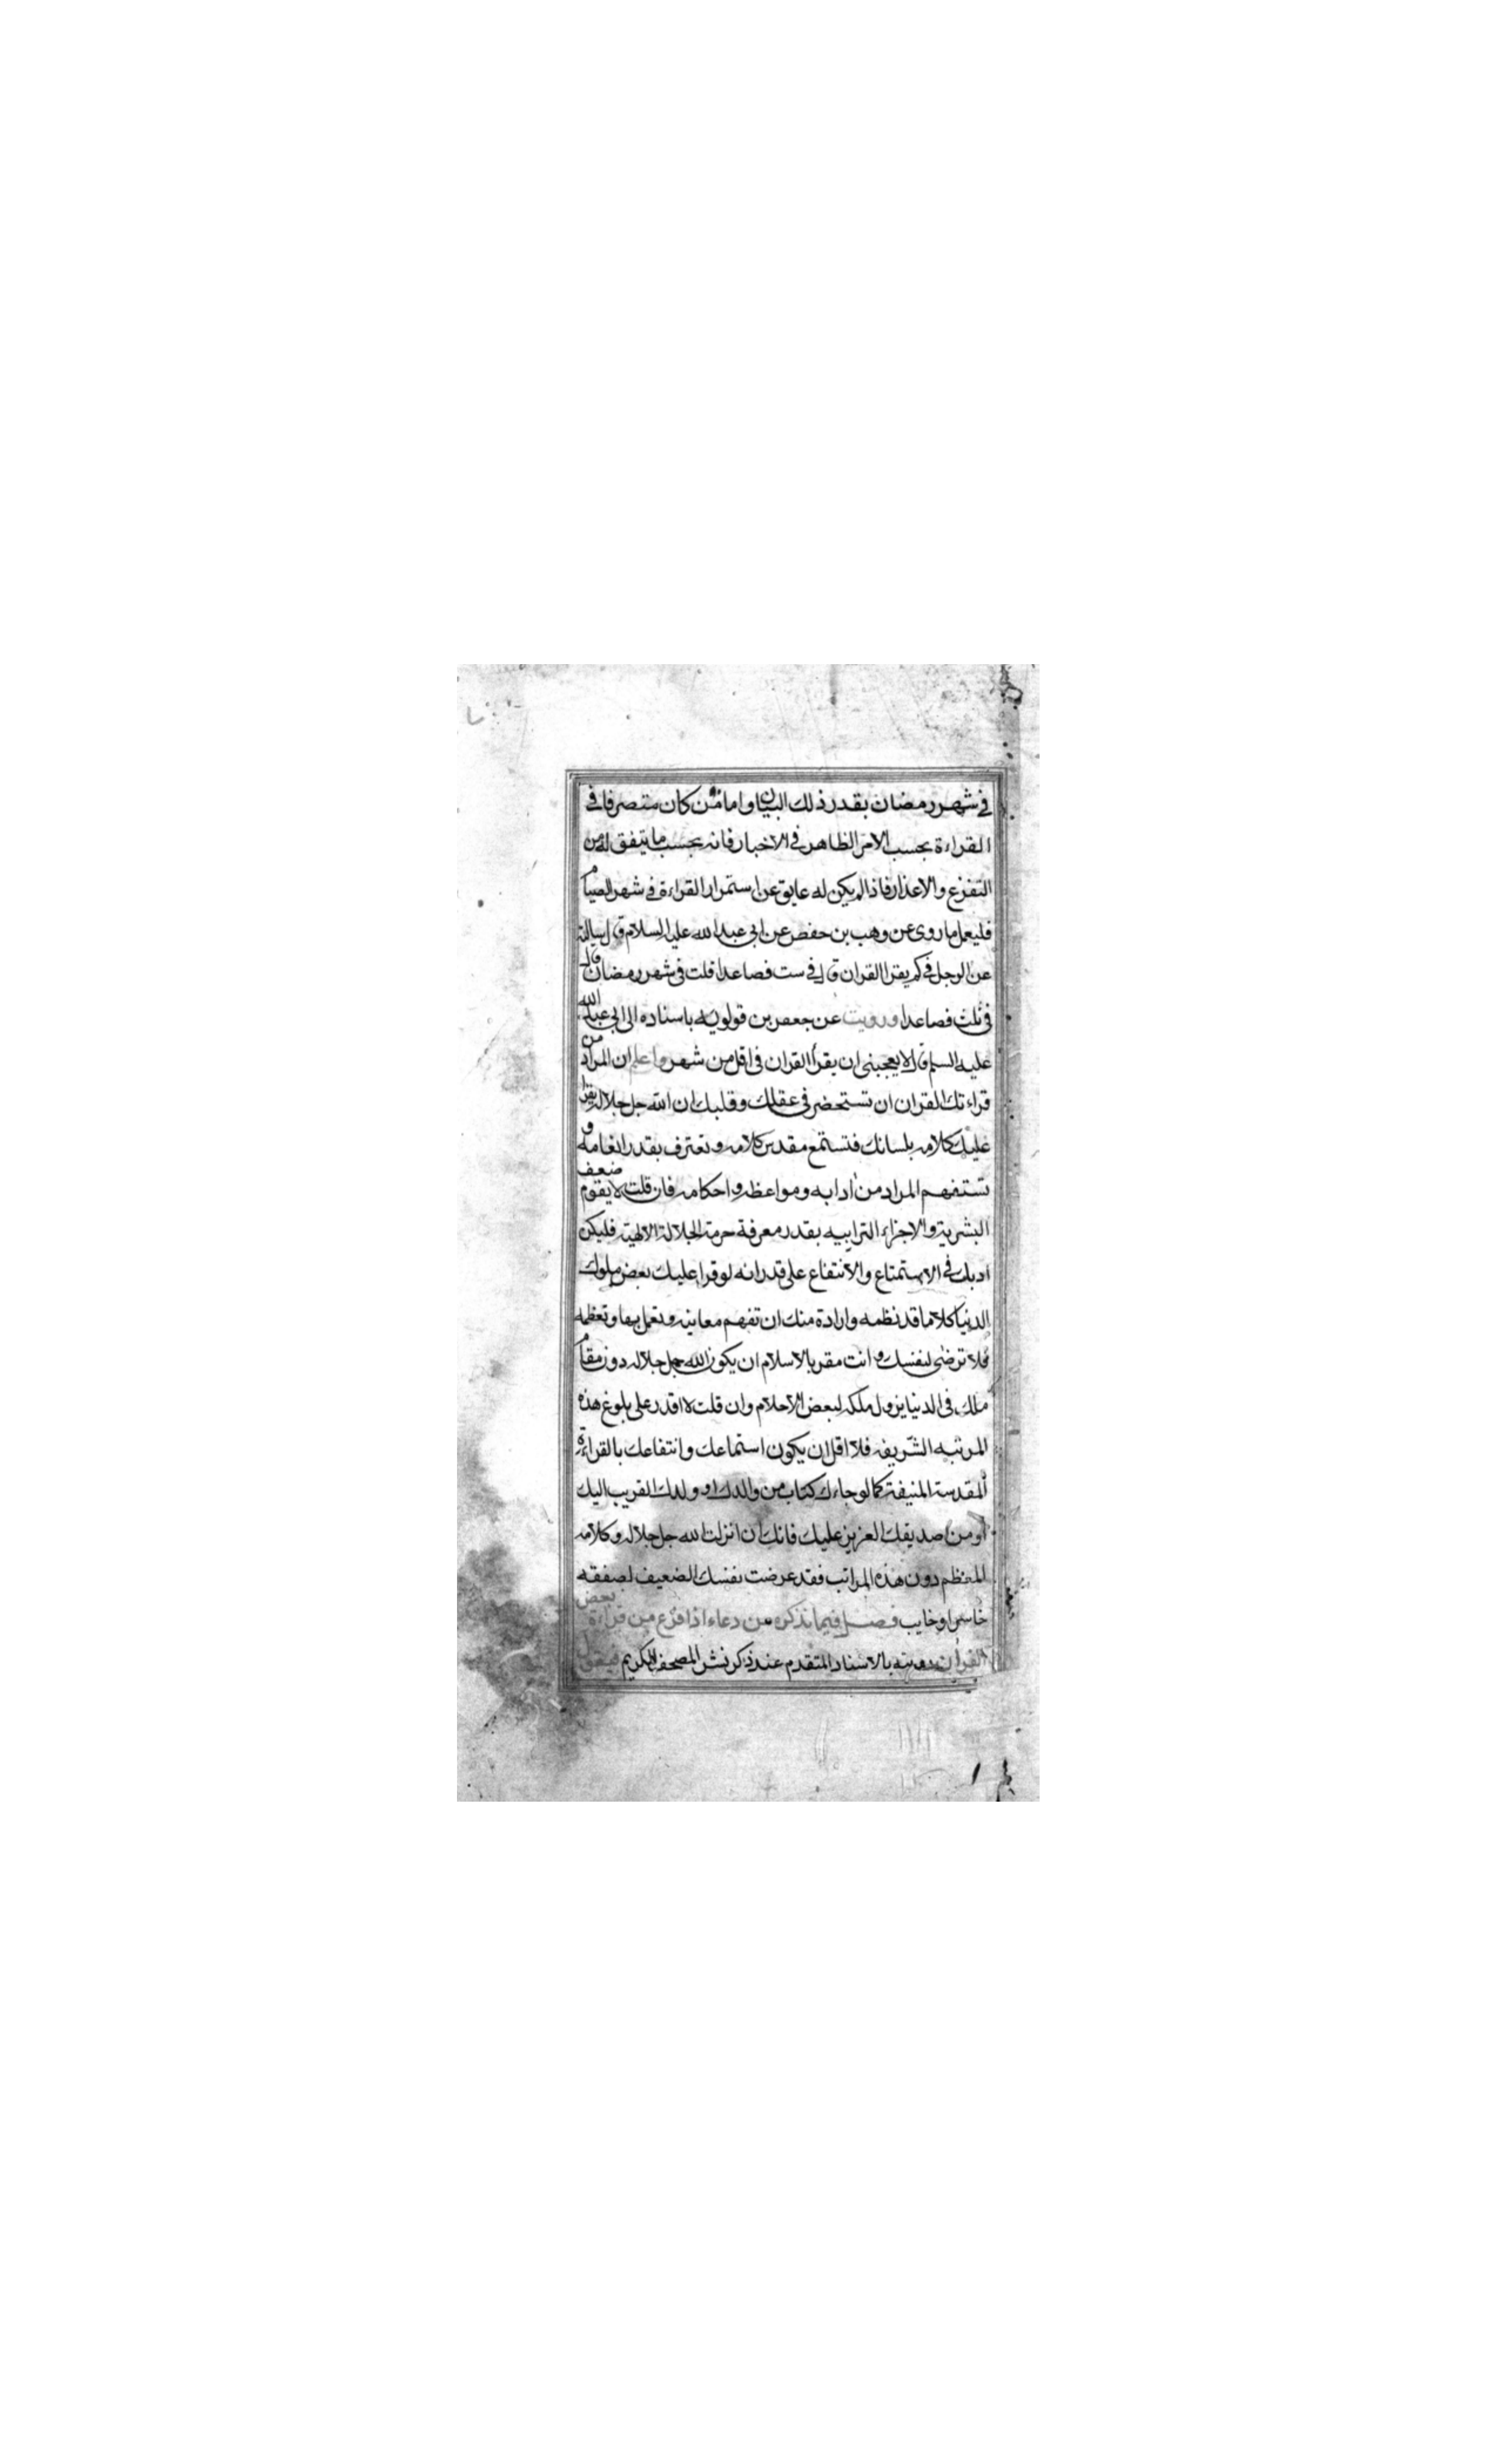 في شهر رمضان بقدر ذلك البيان واما من كان متصرفا في
القراءة بحسب الامر الظاهر في الاخبار فانه بحسب ما يتفق له من
التفرغ والاعذار فاذا لم يكن له عايق عن استمرار القراءة في شهر الصيام
فليعمل ما روى عن وهب بن حفص عن ابي عبد الله عليه السلام قال سالته
عن الرجل في كم يقرا القران قال في ست فصاعدا قلت في شهر رمضان قال
في ثلث فصاعدا ورويت عن جعفر بن قولويه باسناده الى ابي عبد الله
عليه السلم قال لا يعجبني ان يقرأ القران في اقل من شهر واعلم ان المراد من
قراءتك القران ان تستحضر في عقلك وقلبك ان الله جل جلاله يقرا
عليك كلامه بلسانك فتستمع مقدس كلامه وتعترف بقدر انعامه و
تستفهم المراد من ادابه ومواعظه واحكامه فان قلت لا يقوم ضعف
البشرية والاجزاء الترابيه بقدر معرفة حرمة الجلالة الالهية فليكن
ادبك في الاستمتاع والانتفاع على قدر انه لو قرا عليك بعض ملوك
الدنيا كلاما قد نظمه وارادة منك ان تفهم معانيه وتعمل بها وتعظمه
فلا ترضى لنفسك وانت مقر بالاسلام ان يكون الله جل جلاله دون مقام
ملك في الدنيا يزول ملكه لبعض الاحلام وان قلت لا اقدر على بلوغ هذه
المرتبه الشريفه فلا اقل ان يكون استماعك وانتفاعك بالقراءة
المقدسة المنيفة كما لو جاءك كتاب من والدك او ولدك القريب اليك
او من صديقك العزيز عليك فانك ان انزلت الله جل جلاله وكلامه
المعظم دون هذه المراتب فقد عرضت نفسك الضعيف لصفقه
خاسر او خايب فصل فيما نذكره من دعاء اذا فرغ من قراءة بعض
القران رويته بالاسناد المتقدم عند ذكر نشر المصحف الكريم فيقول